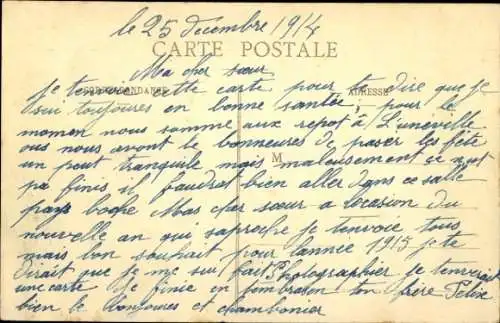 le 25 decembre 1914
CARTE POSTALE
Ma cher sœur
CORRESPONDANCE
ADRESSE
je tenvoi cette carte pour te dire que je
sui toujoures en bonne santée, pour le
momen nous somme aux repot à Lunéville
ous nous avont le bonneures de paser les fête
un peut tranquile mais maleusement ce nest
M
pa finis il faudrat bien aller dans ce salle
pays boche Mas cher sœur a locasion du
nouvelle an qui saproche je tenvoie tous
mais bon souhait pour lannee 1915 je te
dirait que je me sui fait Photographier je tenverait
une carte je finie en tembrasan ton frère Félix
bien le bonjoures et chambonier